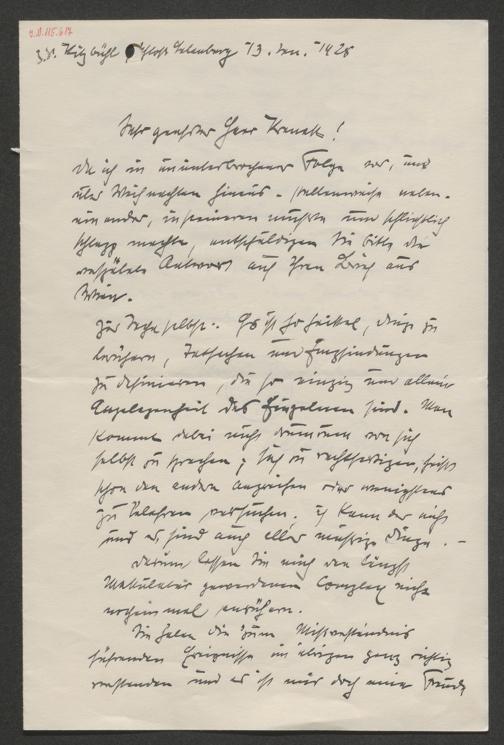 z.Zt. Kitzbühl Schloss Lebenberg 13. Jan. 1928
Sehr geehrter Herr Krenek!
Da ich in ununterbrochener Folge vor, und
über Weihnachten hinaus - stellenweise neben-
einander, inscenieren musste und schliesslich
schlapp machte, entschuldigen Sie bitte die
verspätete Antwort auf Ihren Brief aus
Wien.
Zur Sache selbst: Es ist so heikel, Dinge zu
berühren, Tatsachen und Empfindungen
zu definieren, die so einzig und allein
Angelegenheit des Einzelnen sind. Man
kommt dabei nicht drumrum von sich
selbst zu sprechen; sich zu rechtfertigen, heisst
schon den andern angreifen oder wenigstens
zu belehren versuchen. ich kann das nicht
und es sind auch alles müssige Dinge. -
Darum lassen Sie mich den längst
Makulatur gewordenen Complex nicht
nocheinmal berühren.
Sie haben die zum Missverständnis
führenden Ereignisse im übrigen ganz richtig
verstanden und es ist mir doch eine Freude